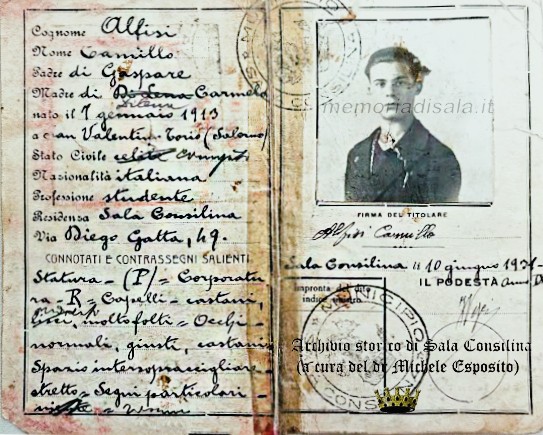 Cognome Alfisi
Nome Camillo
Padre di Gaspare
Madre di Carmela
nato il 7 gennaio 1913
a San Valentino Torio (Salerno)
Stato Civile celibe
Nazionalità italiana
Professione studente
Residenza Sala Consilina
Via Diego Gatta, 49.
CONNOTATI E CONTRASSEGNI SALIENTI
Statura - (P) = Corporatu
ra - R = Capelli - castani,
lisci, molto folti = Occhi -
normali, giusti, castani
Spazio intersopraccigliare -
stretto = Segni particolari -
memoriadisala.it
FIRMA DEL TITOLARE
Alfisi Camillo
Sala Consilina il 10 giugno
IL PODESTÀ
impronta del dito
indice sinistro
MUNICIPIO
Archivio storico di Sala Consilina
(a cura del dr Michele Esposito)